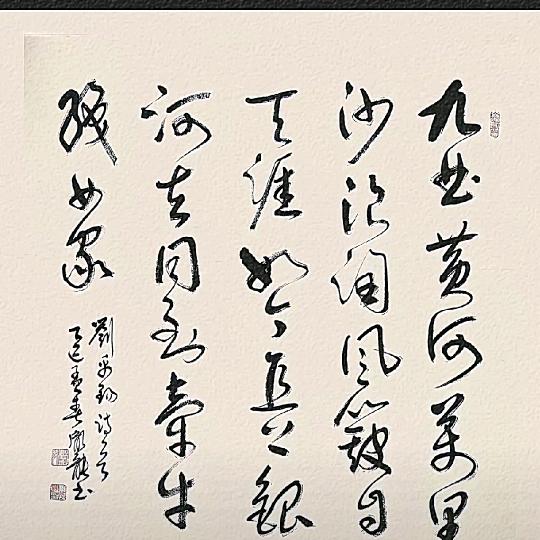 九曲黄河万里
沙浪淘风簸自
天涯如今直上银
河去同到牵牛
织女家
刘禹锡诗一首
乙巳孟春
书